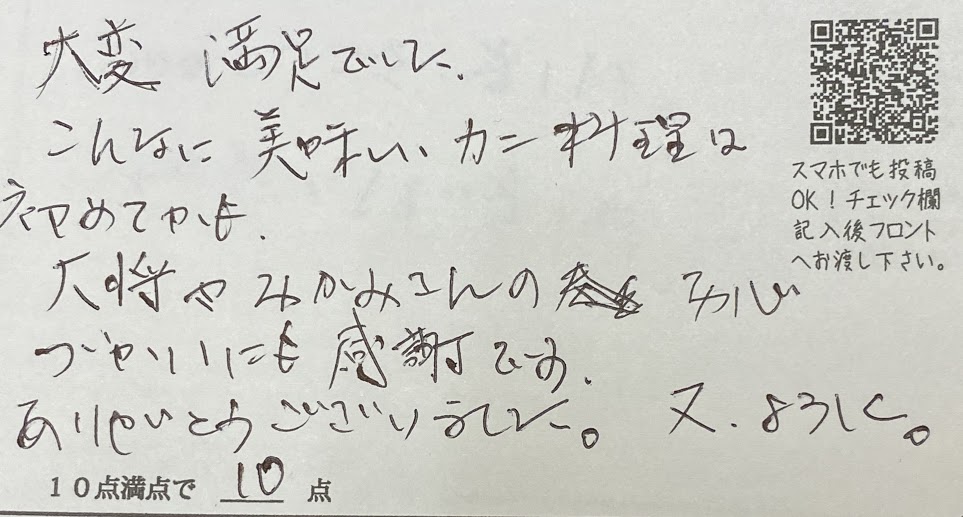 大変 満足でした.
こんなに 美味しい カニ料理は
初めてかも.
大将やみかみさんの お心
づかいにも 感謝です.
ありがとうございました。 又、よろしく。
スマホでも投稿
OK！チェック欄
記入後フロント
へお渡し下さい。
10点満点で 10 点